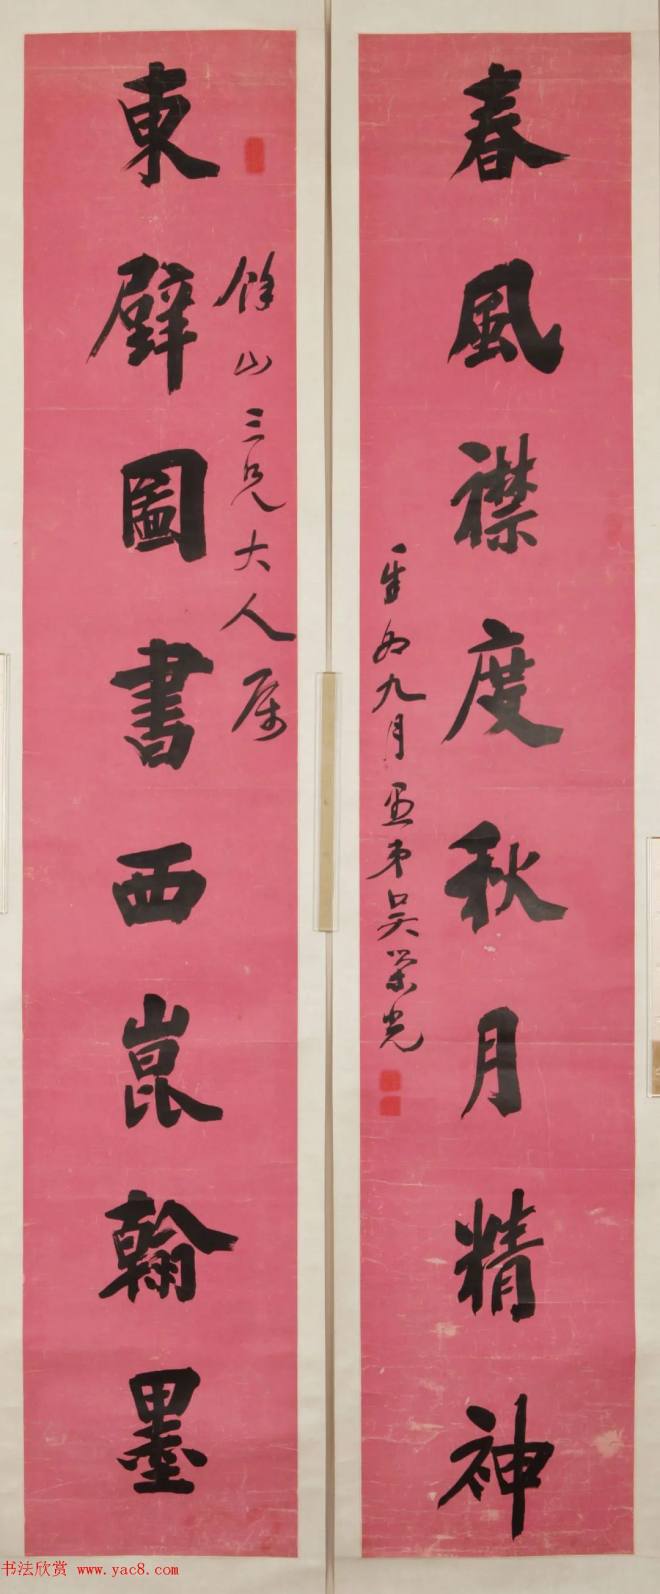 春風襟度秋月精神
東壁圖書西崑翰墨
餘山三兄大人属
九月愚弟吳榮光
书法欣赏 www.yac8.com